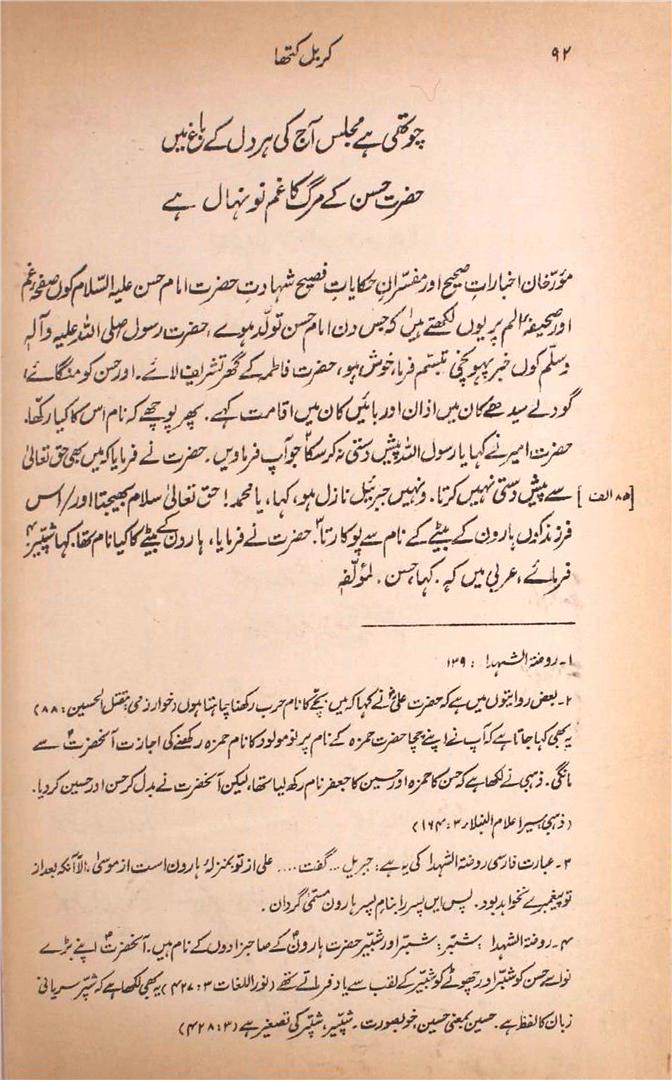 ۹۲
کربل کتھا
چوتھی ہے مجلس آج کی ہر دل کے باغ میں
حضرت حسن کے مرگ کا غم نو نہال ہے
مؤرّخان اخباراتِ صحیح اور مفسّرانِ حکایاتِ فصیح شہادتِ حضرت امام حسن علیہ السّلام کوں صفحۂ غم
اور صحیفۂ الم پر یوں لکھتے ہیں کہ جس دن امام حسن تولّد ہوے، حضرت رسول صلی اللہ علیہ و آلہٖ
وسلّم کوں خبر پہونچی تبسّم فرما، خوش ہو، حضرت فاطمہ کے گھر تشریف لائے۔ اور حسن کو منگائے،
گود لے سیدھے کان میں اذان اور بائیں کان میں اقامت کہے۔ پھر پوچھے کہ نام اس کا کیا رکھا۔
حضرت امیر نے کہا یا رسول اللہ پیش دستی نہ کر سکا۲ جو آپ فرماویں۔ حضرت نے فرمایا کہ میں بھی حق تعالیٰ
[۸۵ الف] سے پیش دستی نہیں کرتا۔ ونہیں جبرئیل نازل ہو، کہا، یا محمد! حق تعالیٰ سلام بھیجتا اور / اس
فرزند کوں ہارون کے بیٹے کے نام سے پوکارتا۳۔ حضرت نے فرمایا، ہارون کے بیٹے کا کیا نام تھا۔ کہا شبّیر۴
فرمائے، عربی میں کہہ۔ کہا، حسن۔ لمؤلّفہٖ
۱۔ روضۃ الشہدا : ۱۳۹
۲۔ بعض روایتوں میں ہے کہ حضرت علیؑ نے کہا کہ میں بچّے کا نام حرب رکھنا چاہتا ہوں (خوارزمی: مقتل الحسین: ۸۸)
یہ بھی کہا جاتا ہے کہ آپ نے اپنے چچا حضرت حمزہ کے نام پر نومولود کا نام حمزہ رکھنے کی اجازت آنحضرتؐ سے
مانگی۔ ذہبی نے لکھا ہے کہ حسن کا حمزہ اور حسین کا جعفر نام رکھ لیا تھا، لیکن آنحضرت نے بدل کر حسن اور حسین کر دیا۔
(ذہبی: سیر اعلام النبلاء ۳: ۱۶۴)
۳۔ عبارت فارسی روضۃ الشہدا کی یہ ہے: جبریل ... گفت .... علی از تو بمنزلۂ ہارون است از موسیٰ، الّا آنکہ بعد از
تو پیغمبرے نخواہد بود۔ پس ایں پسر را بنامِ پسر ہارون مسمّیٰ گردان۔
۴۔ روضۃ الشہدا : شبّر؛ شبّر اور شبّیر حضرت ہارونؑ کے صاحبزادوں کے نام ہیں۔ آنحضرتؐ اپنے بڑے
نواسے حسن کو شبّر اور چھوٹے کو شبّیر کے لقب سے یاد فرماتے تھے (نوراللغات ۳: ۴۲۷) یہ بھی لکھا ہے کہ شبّر سریانی
زبان کا لفظ ہے۔ حسین بمعنی حسین، خوبصورت۔ شبّیر، شبّر کی تصغیر ہے (۳: ۴۲۸)